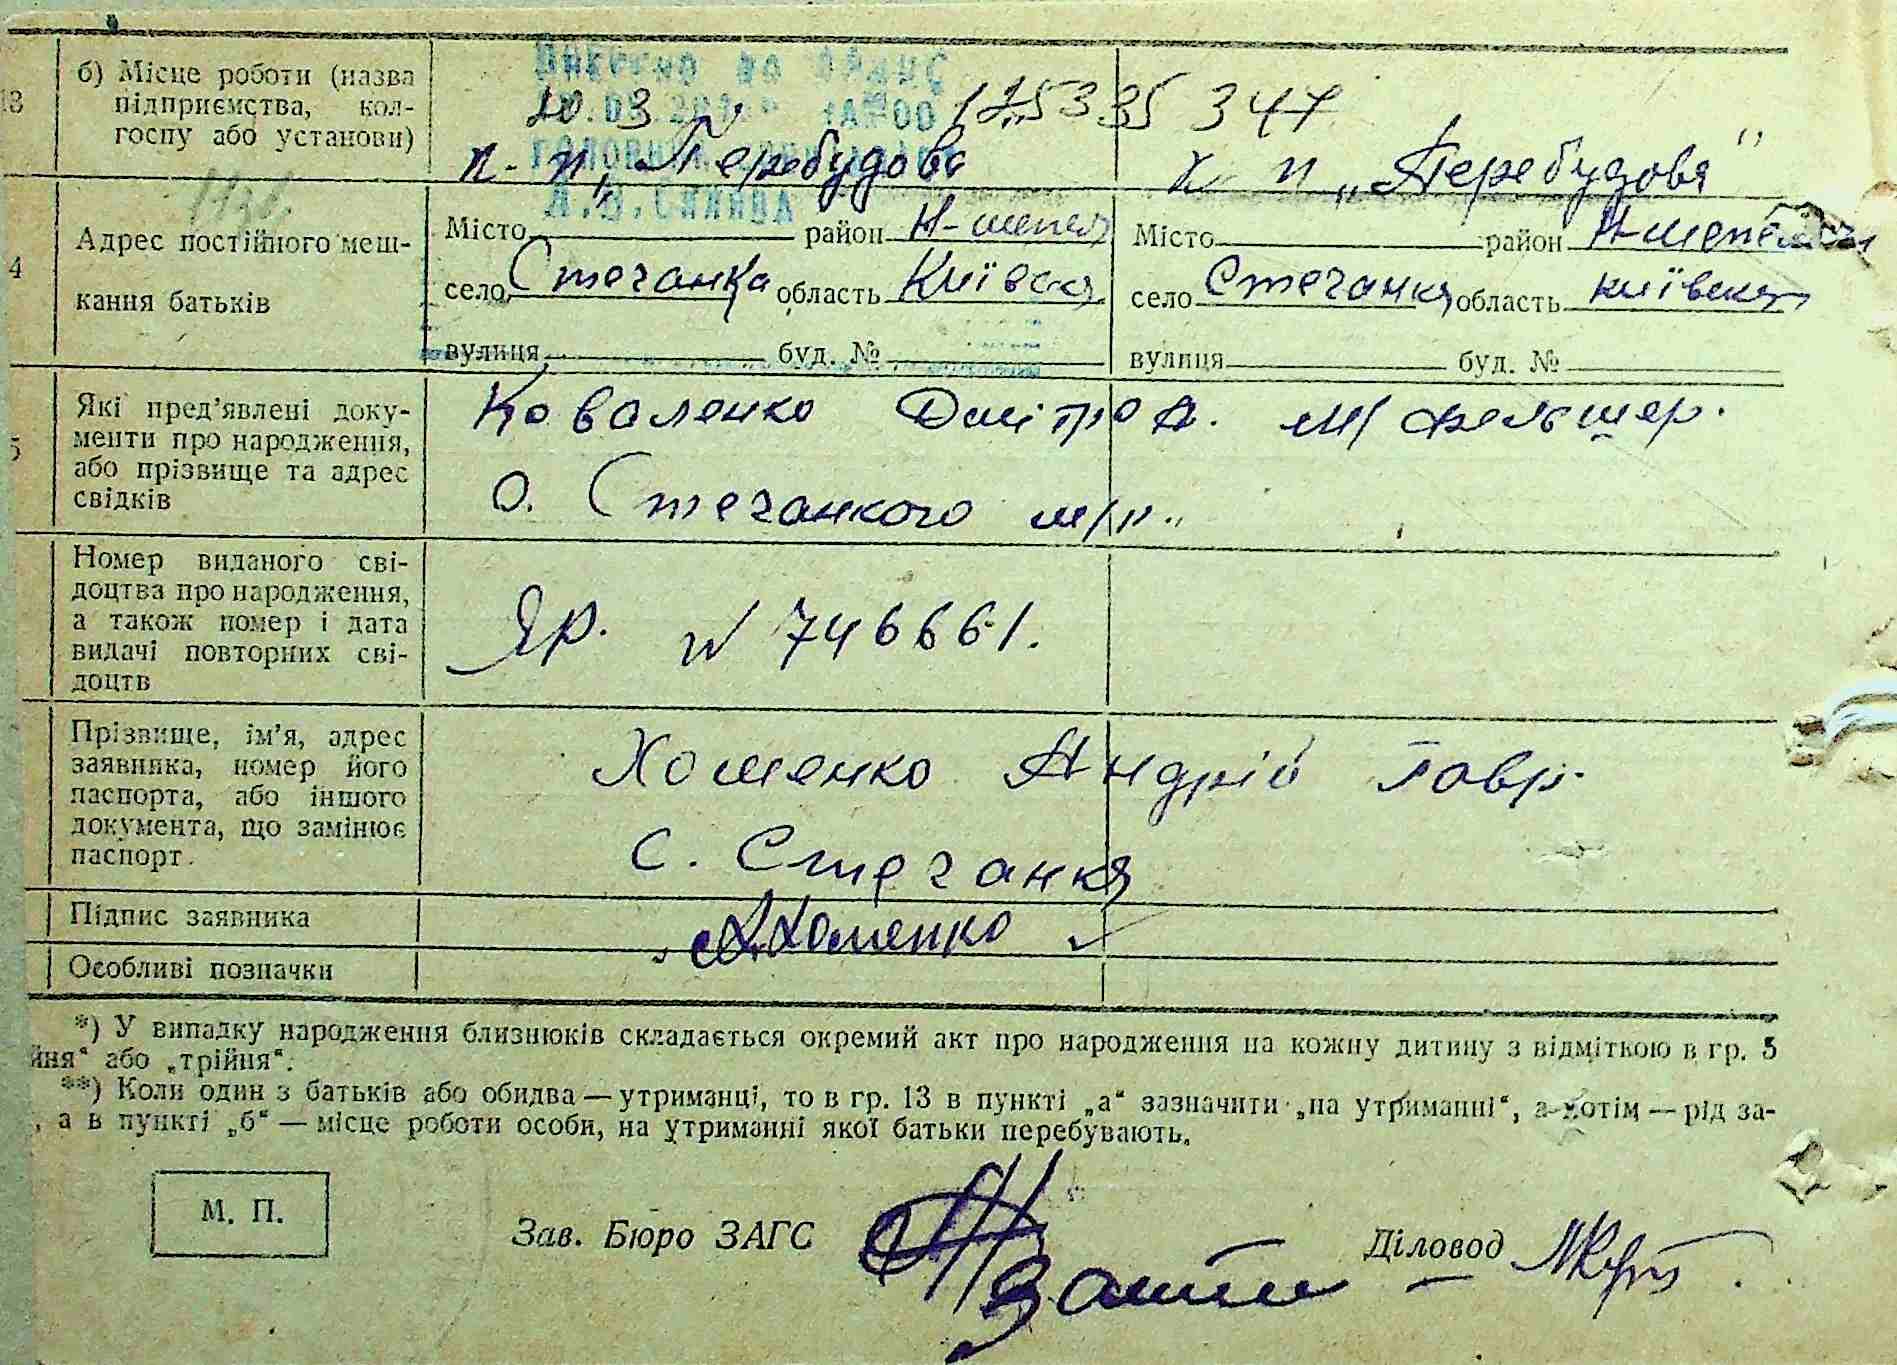 13
б) Місце роботи (назва
підприємства, кол-
госпу або установи)
20.03
12,5335 344
к-п „Перебудова
к п „Перебудова"
4
Адрес постійного меш-
кання батьків
Місто район Н-шепел
село Стечанка область Київська
вулиця буд. №
Місто район Н-шепел
село Стечанка область київська
вулиця буд. №
5
Які пред'явлені доку-
менти про народження,
або прізвище та адрес
свідків
Коваленко Дмітро А. м/фельшер.
О. Стечанкого м/п.
Номер виданого сві-
доцтва про народження,
а також номер і дата
видачі повторних сві-
доцтв
ЯР. N 746661.
Прізвище, ім'я, адрес
заявника, номер його
паспорта, або іншого
документа, що замінює
паспорт.
Хоменко Андрій Гавр.
С. Стечанка
Підпис заявника
А.Хоменко
Особливі позначки
*) У випадку народження близнюків складається окремий акт про народження на кожну дитину з відміткою в гр. 5
йня" або „трійня".
**) Коли один з батьків або обидва — утриманці, то в гр. 13 в пункті „а" зазначити „на утриманні", а потім — рід за-
, а в пункті „б" — місце роботи особи, на утриманні якої батьки перебувають.
М. П.
Зав. Бюро ЗАГС
Діловод